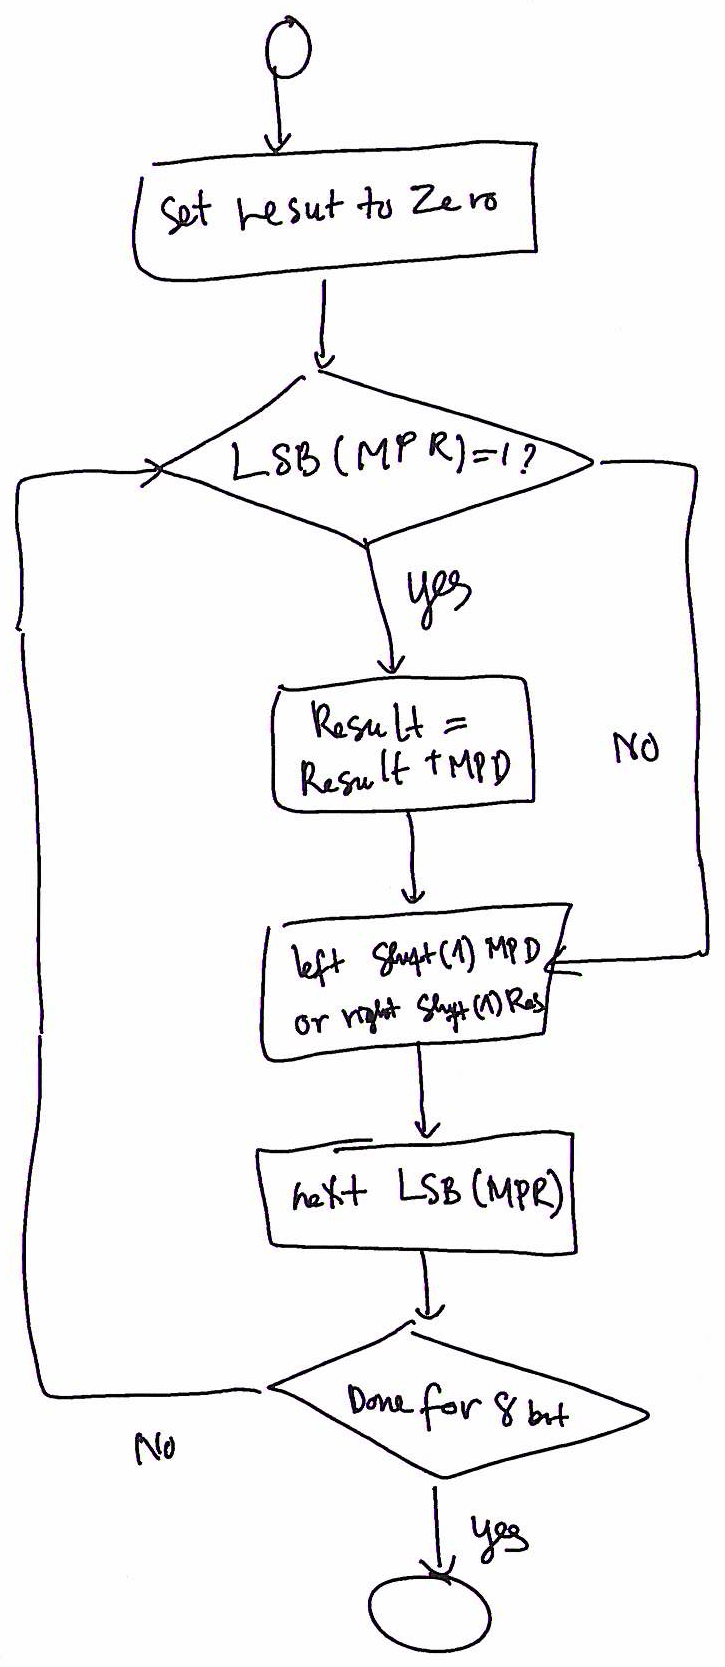 Set resut to Zero
LSB(MPR)=1?
yes
Result =
Result + MPD
NO
left Shift(1) MPD
or right Shift(1) Res
next LSB(MPR)
Done for 8 bit
No
yes